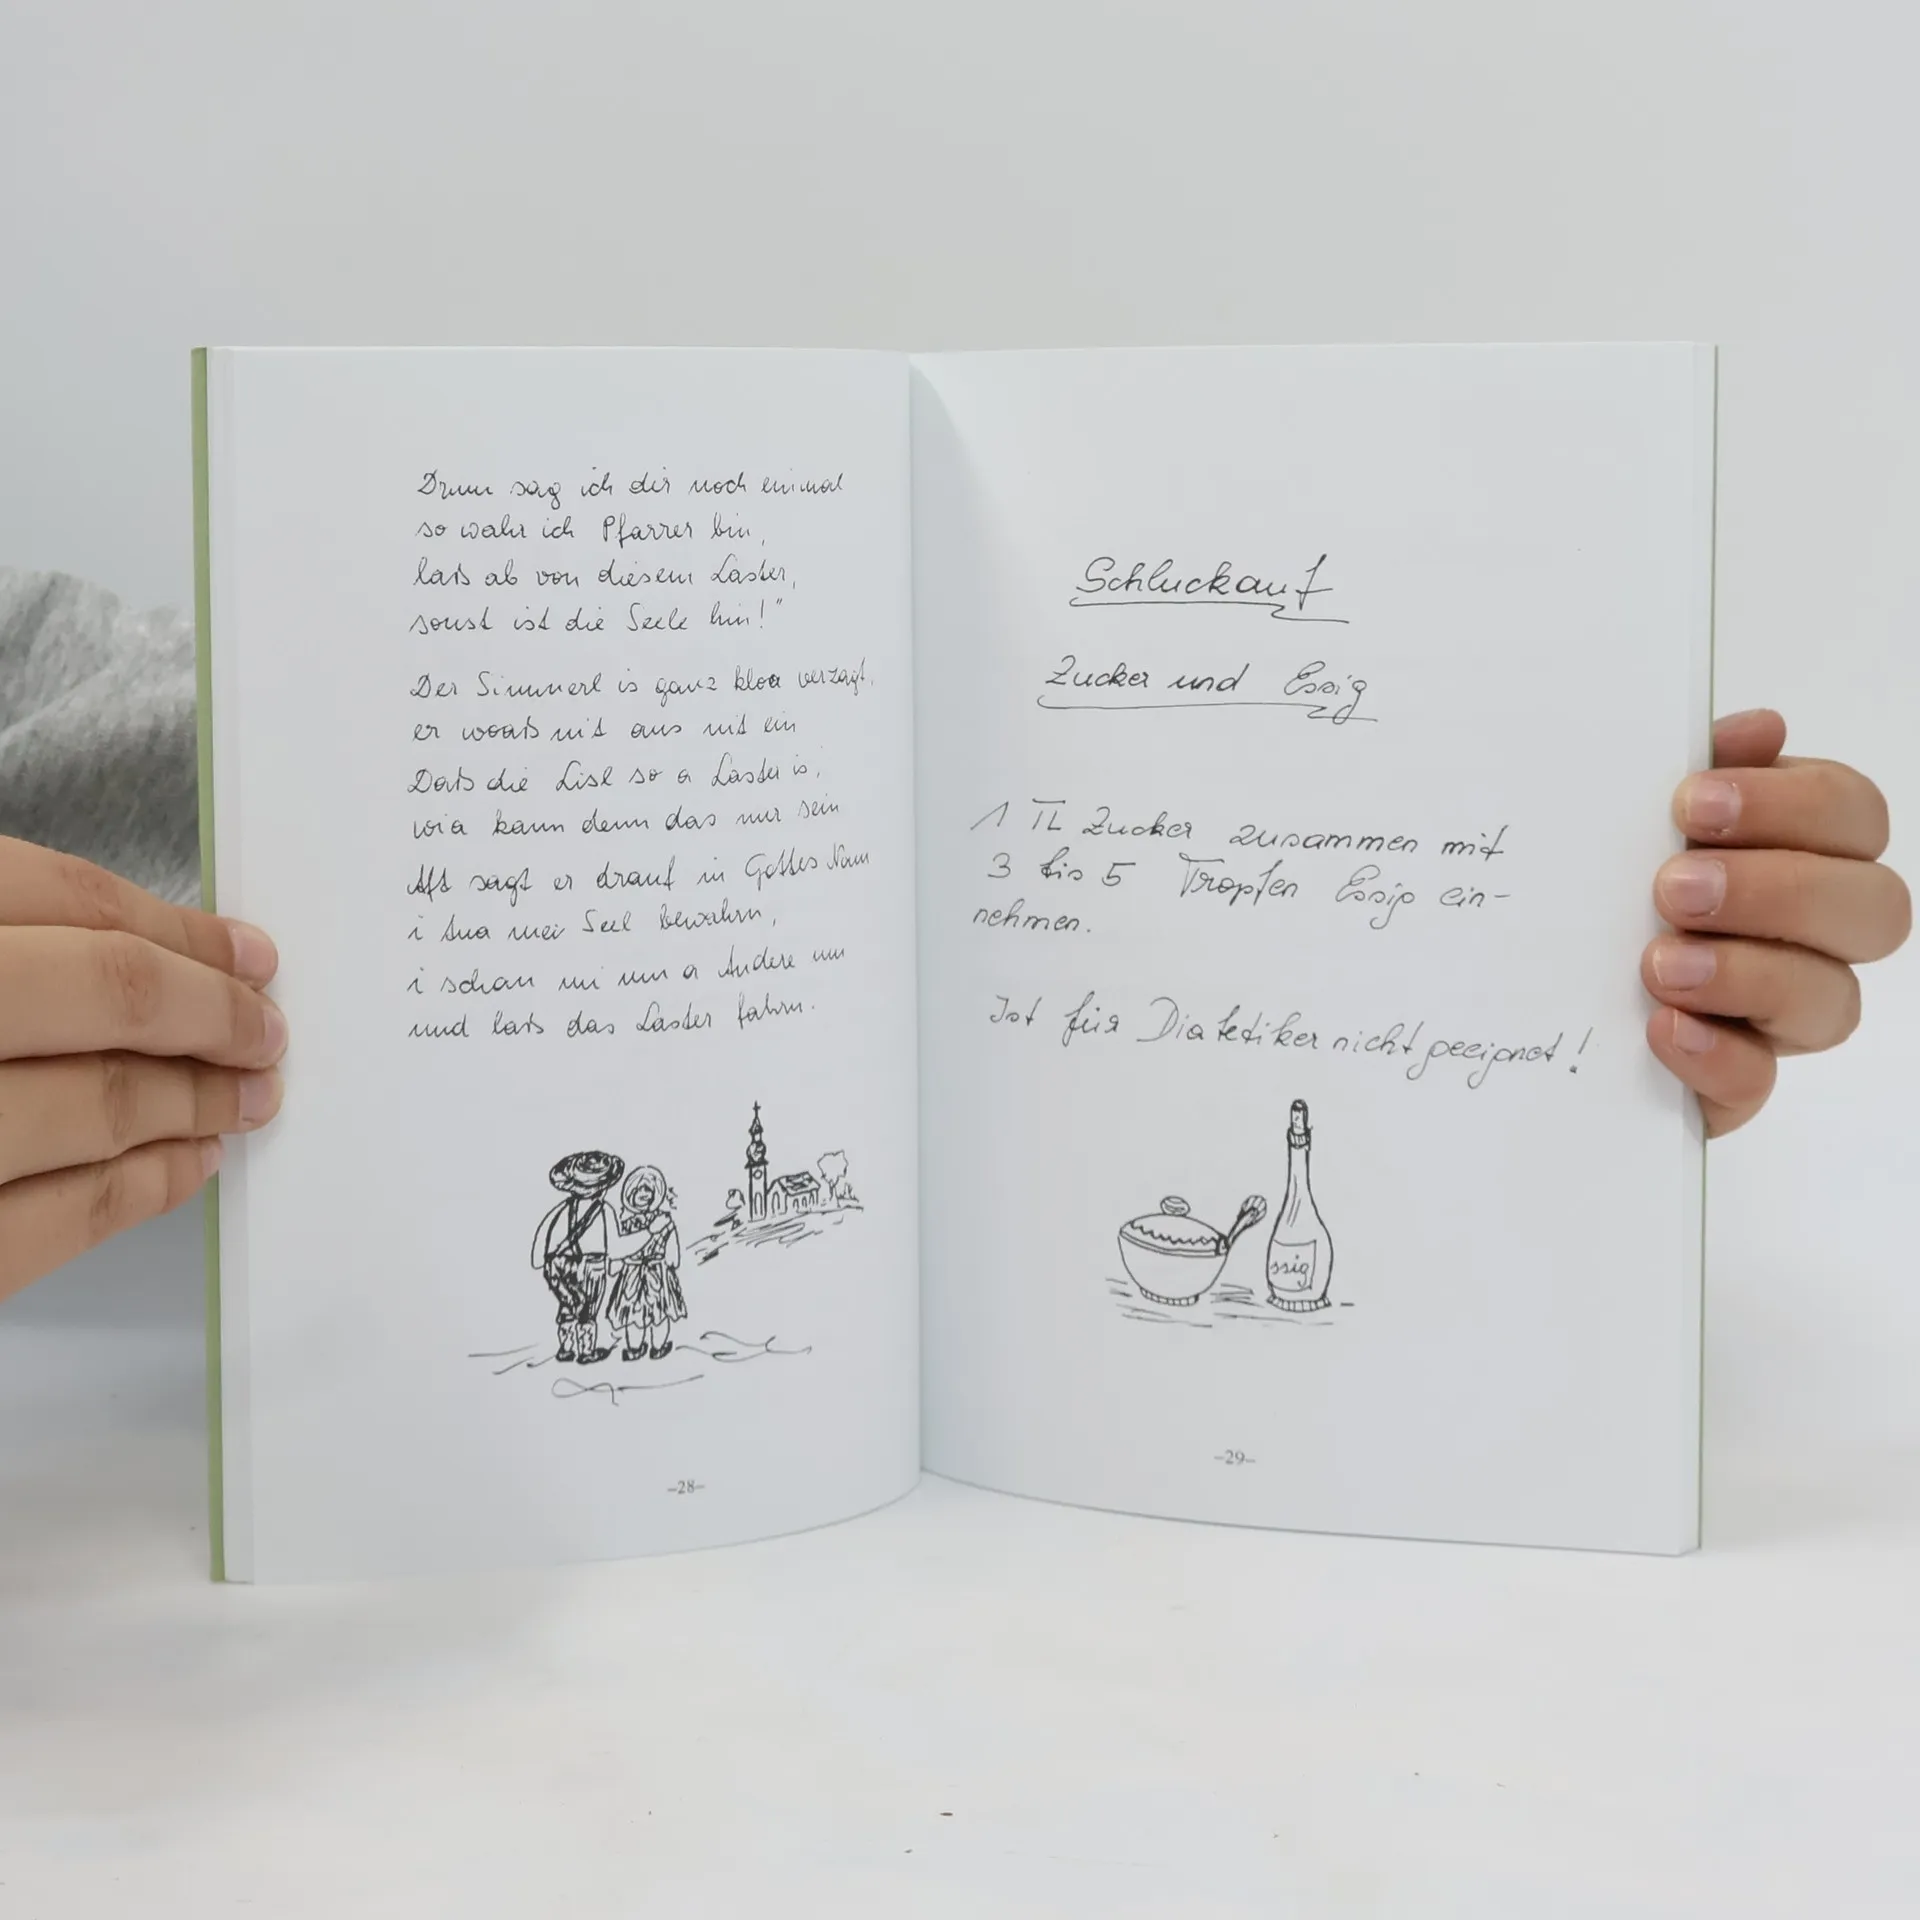 Drum sag ich dir noch einmal
so wahr ich Pfarrer bin,
laß ab von diesem Laster,
sonst ist die Seele hin!"
Der Simmerl is ganz kloa verzagt,
er woaß nit aus nit ein
Daß die Lisl so a Laster is,
wia kann denn das nur sein
Aft sagt er drauf in Gottes Nam
i tua mei Seel bewahrn,
i schau mi um a Andere um
und laß das Laster fahrn.
-28-
Schluckauf
Zucker und Essig
1 TL Zucker zusammen mit
3 bis 5 Tropfen Essig ein-
nehmen.
Ist für Diatetiker nicht geeignet!
ssig
-29-